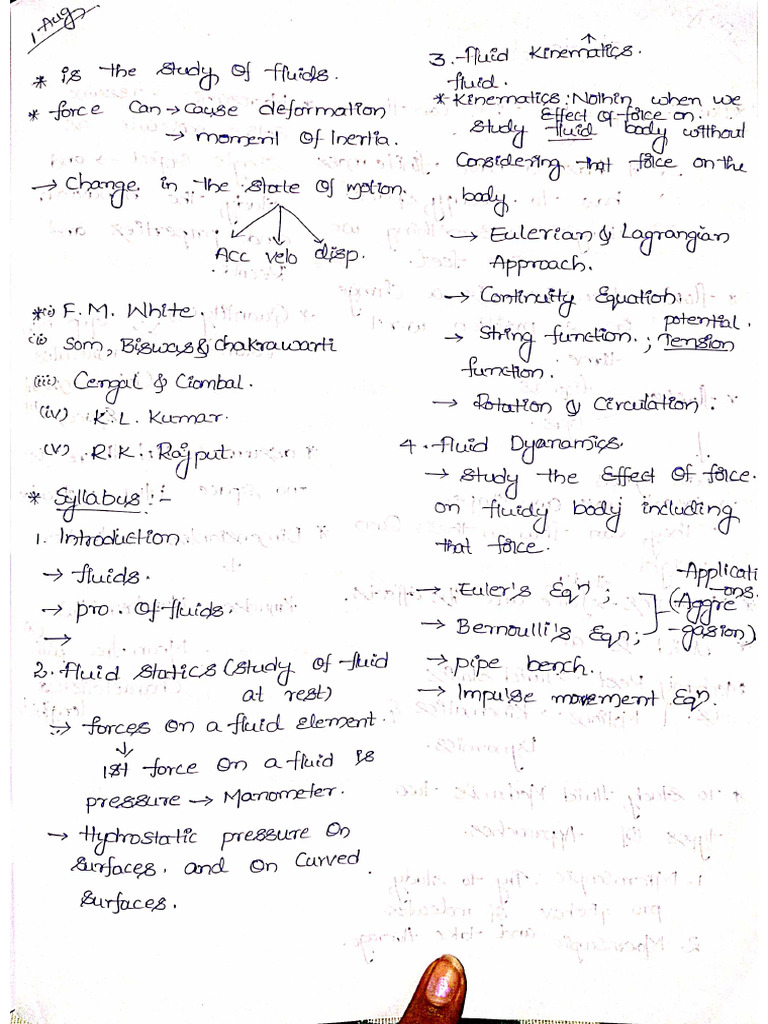 1-Aug
* is the study of fluids.
* force can → cause deformation
→ moment of Inertia.
→ Change in the state of motion.
Acc velo disp.
* i) F.M. White.
(ii) Som, Biswas & chakrawarti
(iii) Cengal & Ciombal.
(iv) K.L. Kumar.
(v) R.K. Rajput.
* Syllabus :-
1. Introduction
→ fluids.
→ pro.. Of fluids.
→
2. fluid statics (study of fluid
at rest)
→ forces on a fluid element.
↓
1st force on a fluid is
pressure → Manometer.
→ Hydrostatic pressure on
surfaces. and on Curved
surfaces.
3. fluid Kinematics.
fluid.
* Kinematics: Nothin when we
Effect of force on.
study fluid body without
Considering that force on the
body.
→ Eulerian & Lagrangian
Approach.
→ Continuity Equation.
potential.
→ String function. ; Tension
function.
→ Rotation & Circulation.
4. fluid Dyanamics.
→ Study the Effect of force.
on fluidy body including
that force.
→ Euler's Eqn ;
→ Bernoulli's Eqn;
- Applicati
ons.
(Aggre
-gasion)
→ pipe bench.
→ Impulse movement Eqn.